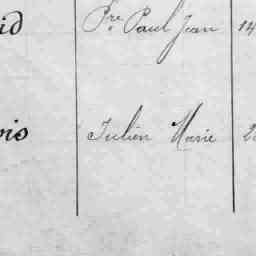 id Pre Paul Jean 14
vis Julien Marie 2